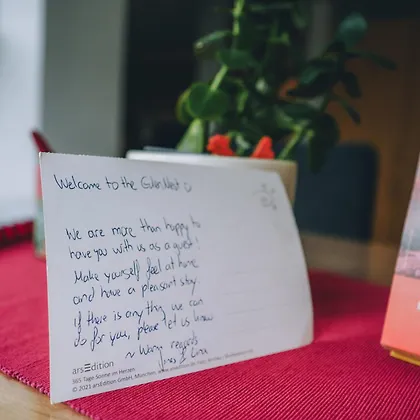 Welcome to the
We are more than happy to
have you with us as a guest!
Make yourself feel at home
and have a pleasant stay
if there is any thing we can
do for you, please let us know
~ Warm regards
arsEdition
365 Tage Sonne im Herzen
© 2021 arsEdition GmbH, München, www.arsedition.de